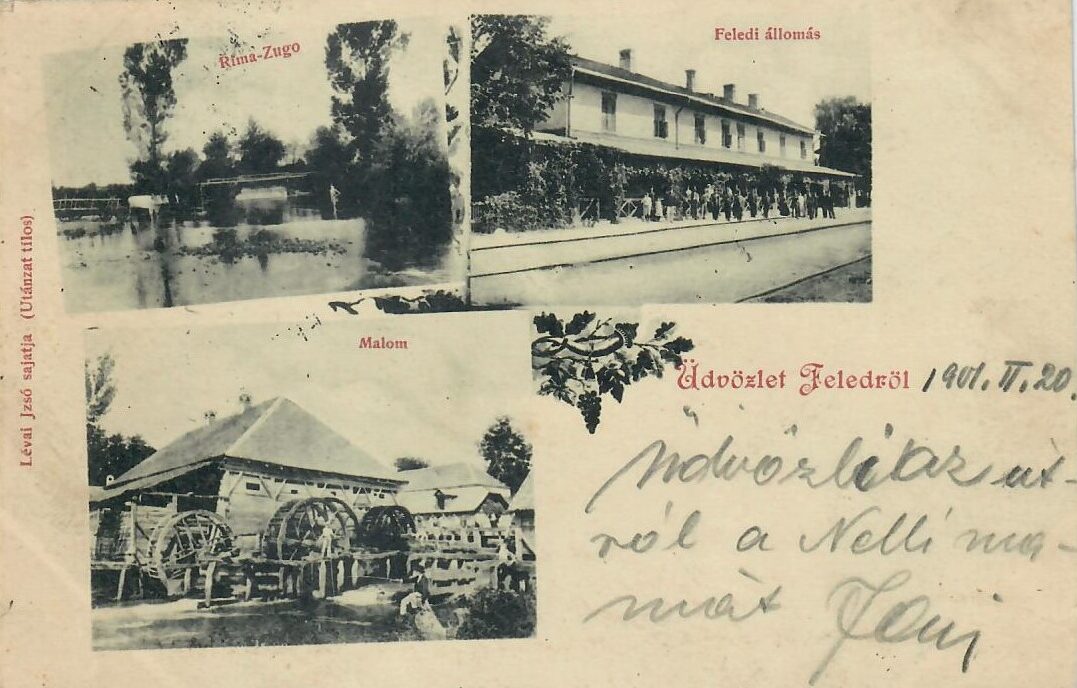 Rima-Zugo
Feledi állomás
Lévai Jzsó sajatja (Utánzat tilos)
Malom
Üdvözlet Feledröl 1901. II. 20.
Üdvözli az ut-
ról a Nelli ma-
mát Jani